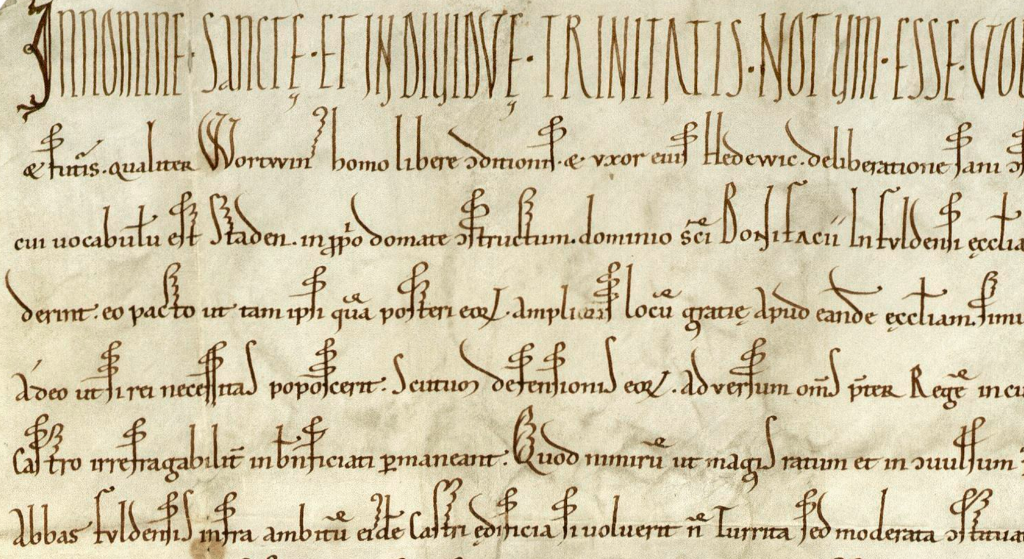 In nomine · sanctę · et indiuiduę · trinitatis · Notum · esse · vol
& futuris. qualiter Wortwin homo libere ɔditionis. & uxor eius Hedewic. deliberatione sani ɔ
cui uocabulū est Staden. in ꝓprio domate ɔstructum. dominio sc̄i Bonifacii In fuldensi ęcclia
derint. eo pacto ut tam ipsi quā posteri eoꝝ. amplioris locū gratię Apud eandē ęccliam. simu
Adeo ut si rei necessitas poposcerit. Scituos defensionis eoꝝ. aduersum om̄s p̄ter Regē in cu
Castro irrefragabilit̄ in bn̄ficiati ꝑmaneant. Quod nimirū ut magis ratum et in ɔuulsum
Abbas fuldensis infra ambitū eiusdē Castri ędificia si uoluerit n̄ Turrita sed moderata ɔstitua